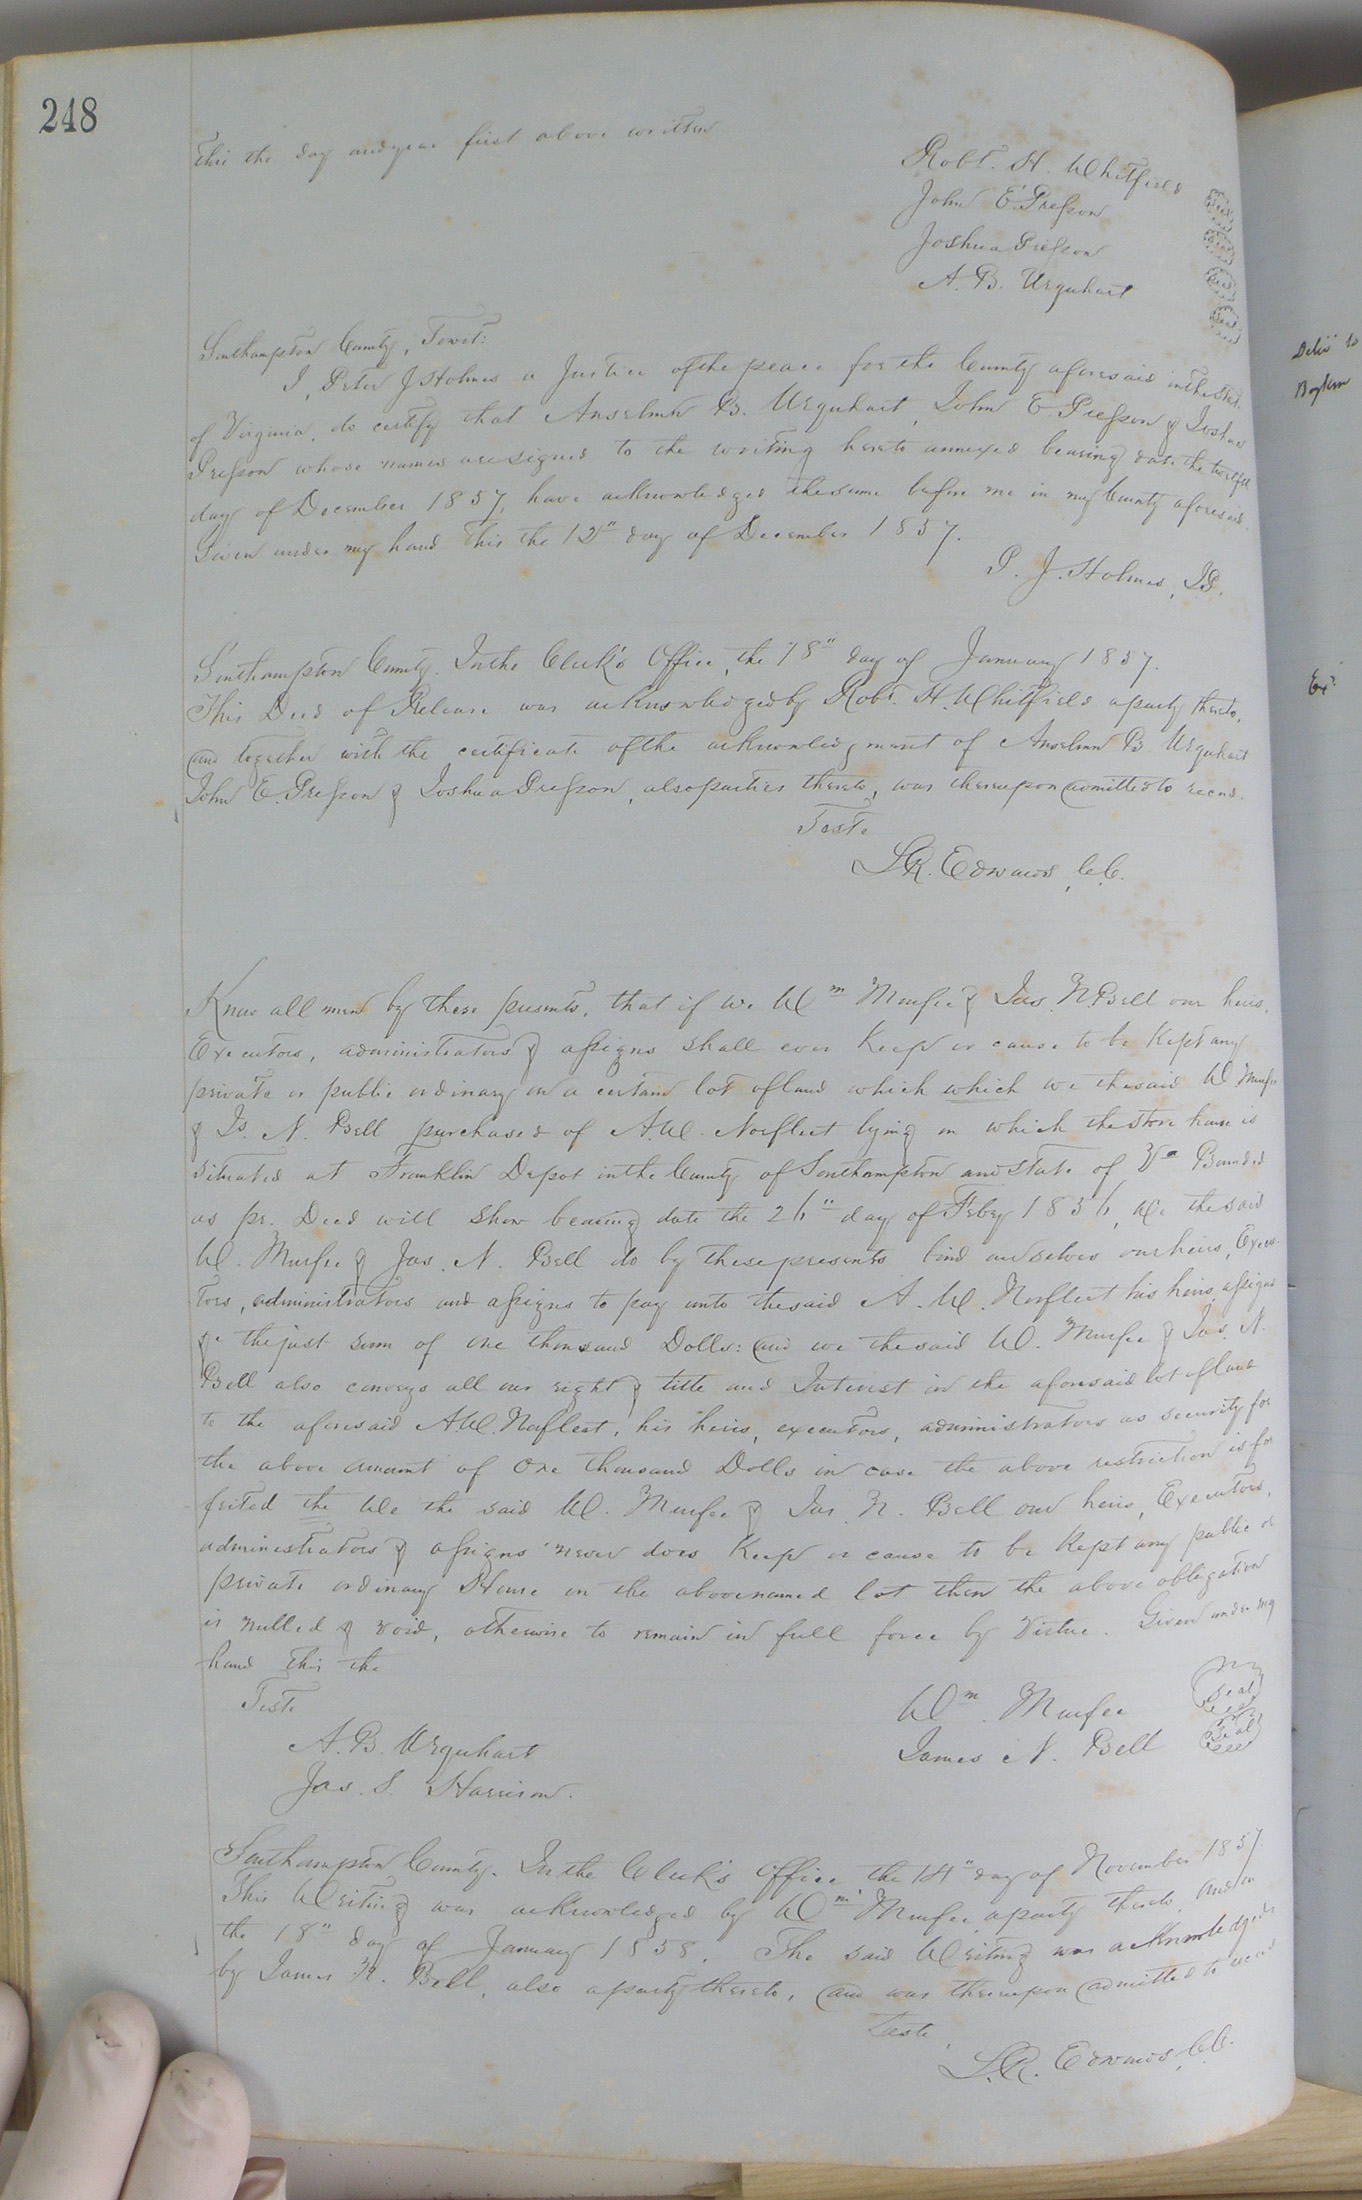 248
This the day and year first above written
Robt. H. Whitfield Seal
John E. Presson Seal
Joshua Presson Seal
A. B. Urquhart Seal
Southampton County, Towit:
I, Peter J Holmes a Justice of the peace for the County aforesaid in the State
of Virginia, do certify that Anselmn B. Urquhart, John E Presson & Joshua
Presson whose names are signed to the writing hereto annexed bearing date the twelfth
day of December 1857, have acknowledged the same before me in my County aforesaid.
Given under my hand this the 12" day of December 1857.
P. J. Holmes, J.P.
Southampton County. In the Clerk's Office, the 18" day of January 1857.
This Deed of Release was acknowledged by Robt. H. Whitfield a party thereto,
and together with the certificate of the acknowledgment of Anselmn B. Urquhart
John E. Presson & Joshua Presson, also parties thereto, was thereupon admitted to record.
Teste
L.R. Edwards, C.C.
Know all men by these presents, that if we Wm Murfee & Jas. N. Bell our heirs,
Executors, administrators & assigns shall ever Keep or cause to be Kept any
private or public ordinary on a certain lot of land which which we the said W Murfee
& Js. N. Bell purchased of A.W. Norfleet lying on which the store house is
situated at Franklin Depot in the County of Southampton and State of Va Bounded
as pr. Deed will show bearing date the 26" day of Feby 1856, We the said
W. Murfee & Jas. N. Bell do by these presents bind ourselves our heirs, Execu-
tors, administrators and assigns to pay unto the said A. W. Norfleet his heirs, assigns
&c the just sum of one thousand Dolls: and we the said W. Murfee & Jas. N.
Bell also conveys all our right & title and Interest in the aforesaid lot of land
to the aforesaid A.W. Norfleet, his heirs, executors, administrators as security for
the above amount of One thousand Dolls in case the above restriction is for
feited the We the said W. Murfee & Jas. N. Bell our heirs, Executors,
administrators & assigns never does Keep or cause to be Kept any public or
private ordinary House on the above named lot then the above obligation
is nulled & void, otherwise to remain in full force by Virtue. Given under my
hand this the
Teste
Wm. Murfee Seal
A. B. Urquhart
James N. Bell Seal
Jas. S. Harrison.
Southampton County. In the Clerk's Office the 14" day of November 1857
This Writing was acknowledged by Wm Murfee, a party thereto, And on
the 18" day of January 1858. The said Writing was acknowledged
by James N. Bell, also a party thereto, and was thereupon admitted to record
Teste
L.R. Edwards, C.C.
Delivd to